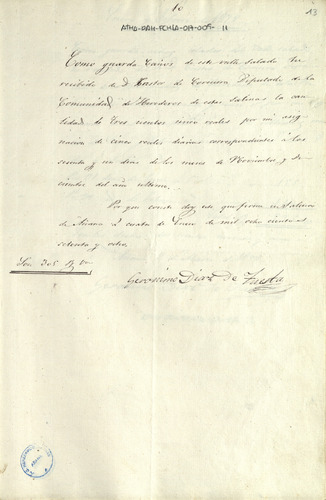 10
13
ATHA-DAH-FCHLA-017-009-11
Como guarda Caños de este valle Salado he
recibido de D. Castor de Corcuera Diputado de la
Comunidad de Herederos de estas Salinas la can-
tidad de tres cientos cinco reales por mi asig-
nacion de cinco reales diarios correspondientes à los
sesenta y un dias de los meses de Noviembre y Di-
ciembre del año ultimo.
Por que conste doy este que firmo en Salinas
de Añana à cuatro de Enero de mil ocho cientos
setenta y ocho.
Son 305 Rs. vn.
Geronimo Diaz de Tuesta